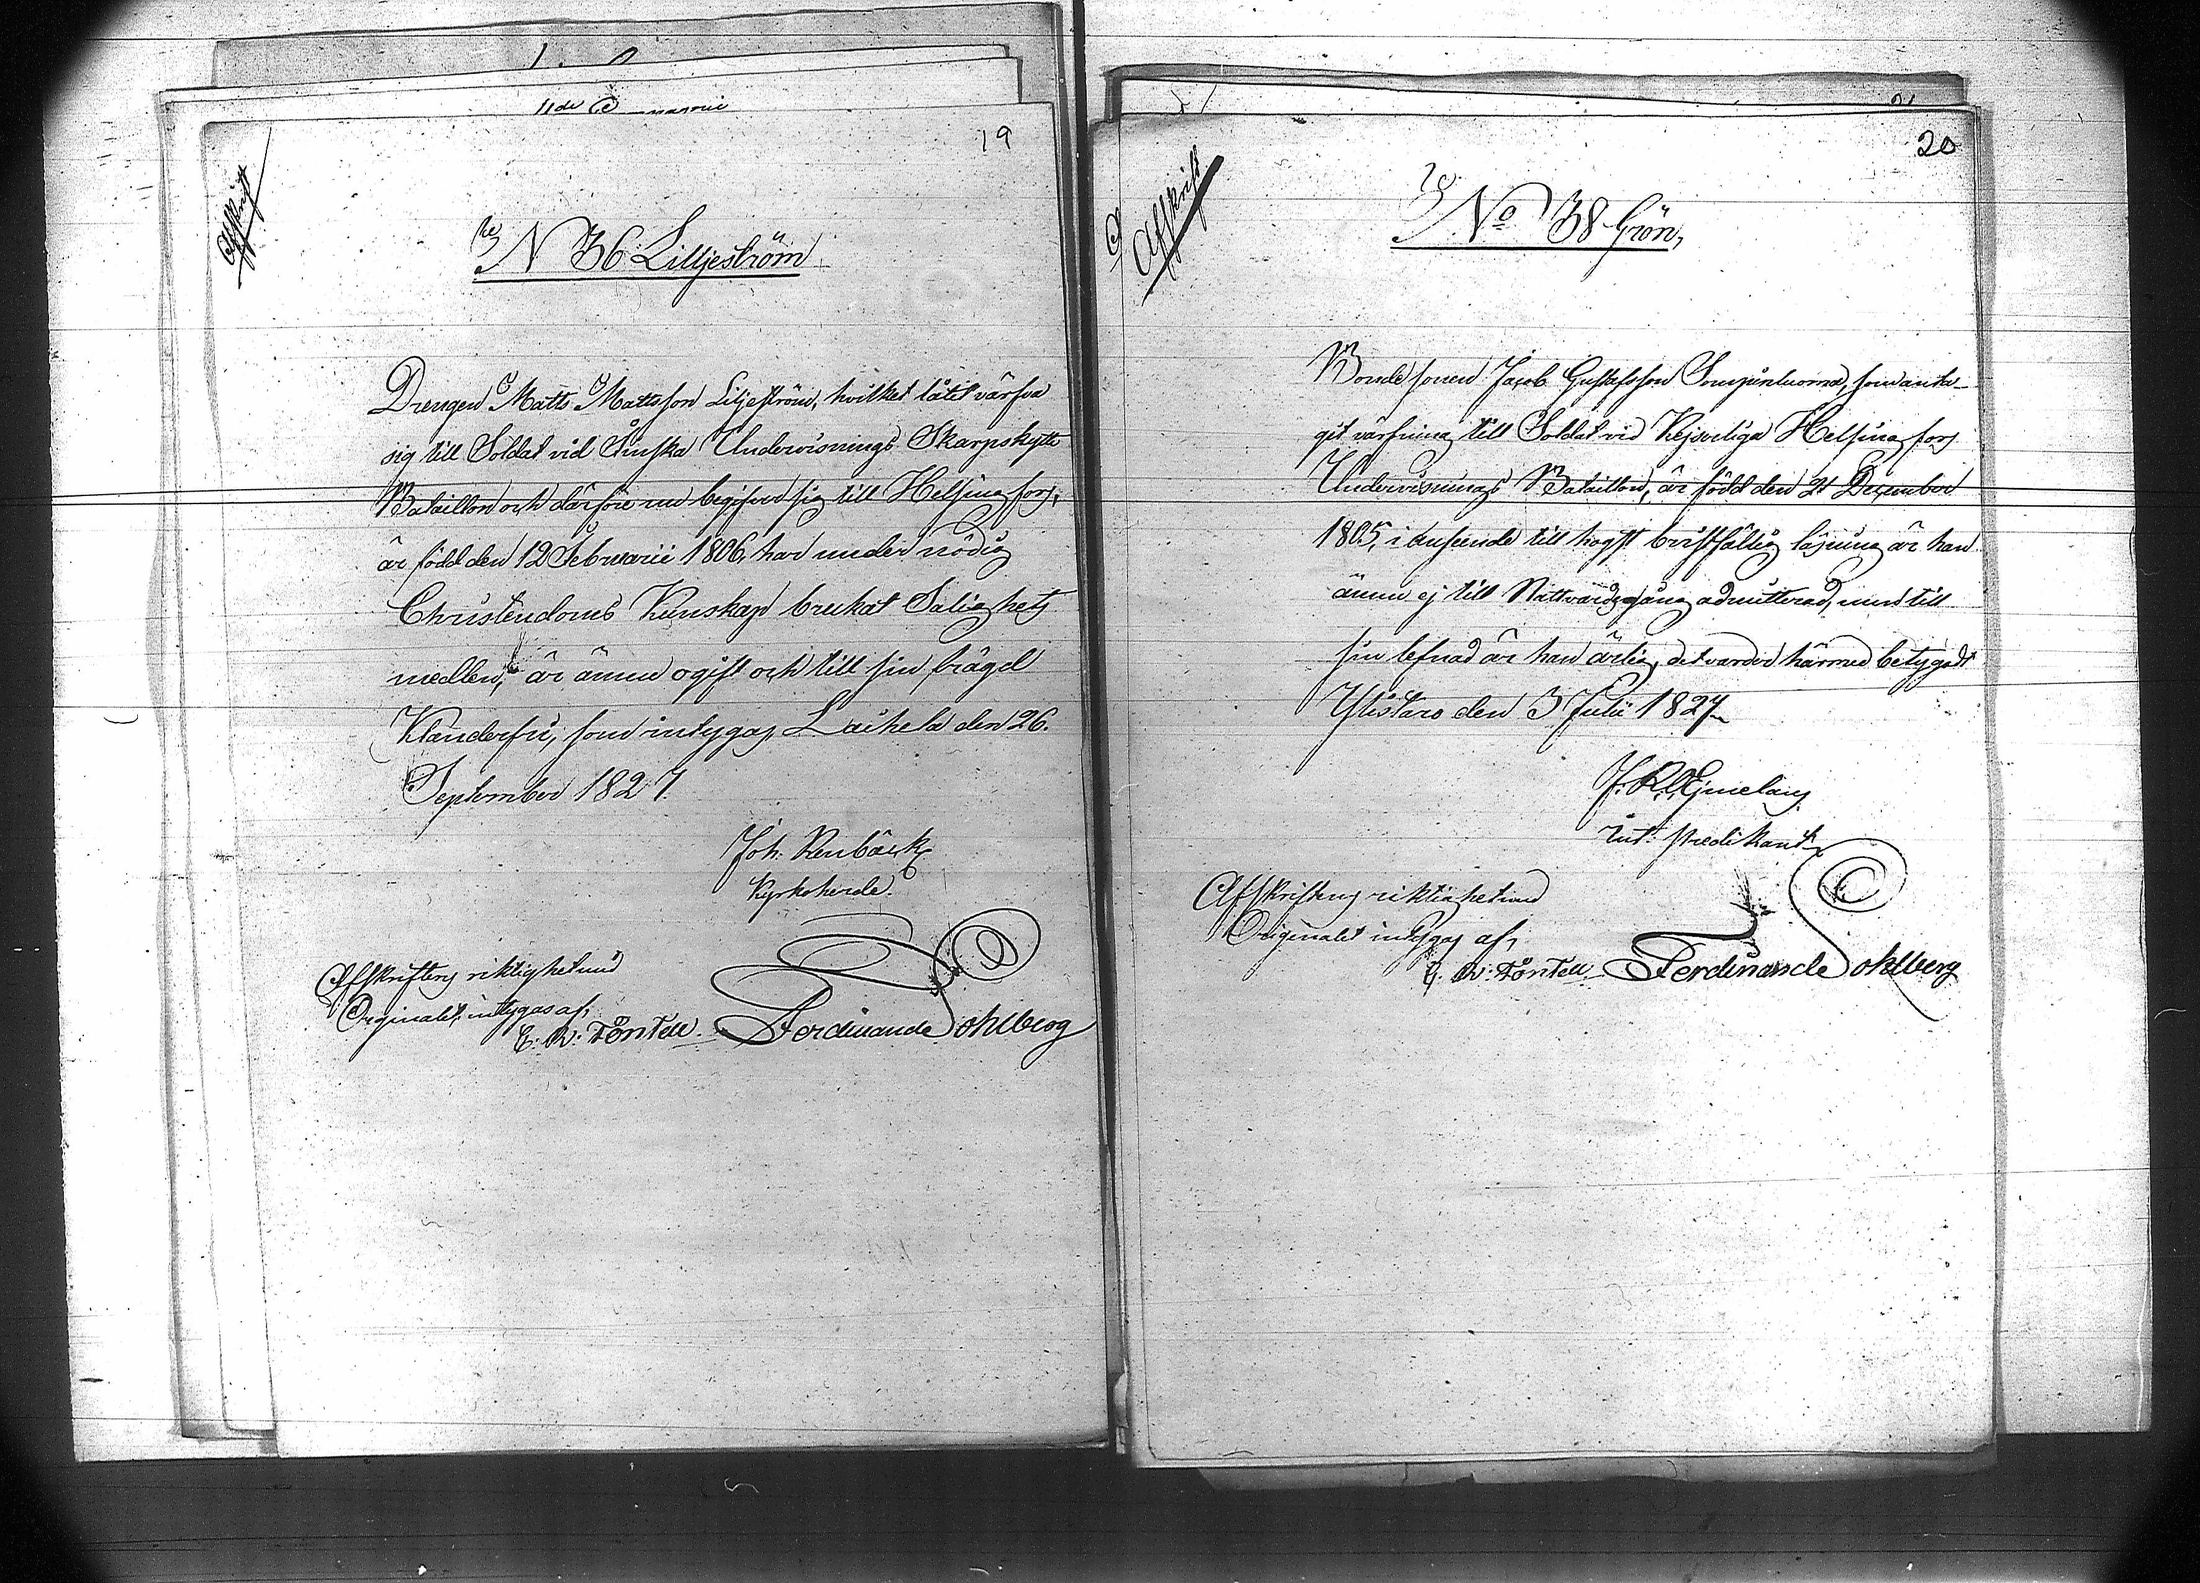 19
Afskrift
N 36 Lilljeström
Drengen Matts Mattsson Liljeström, hvilket låtit värfva
sig till Soldat vid Finska Undervisnings Skarpskytte
Bataillon och därföre nu begifver sig till Helsingfors,
är född den 12 Februarii 1806, har under nödig
Christendoms Kunskap brukat Salighets
medlen, är ännu ogift och till sin frägd
Klanderfri, som intygas Laihela den 26.
September 1827.
Joh. Renbäck
Kyrkoherde.
Afskriftens riktighet med
Orginalet, intygas af,
E. W. Töntell Ferdinand Sohlberg
20
Afskrift
No 38 Grön,
Bonde sonen Jacob Gustafsson som anta-
git värfning till Soldat vid Kejserliga Helsingfors
Undervisnings Bataillon, är född den 21 December
1805, i anseende till högst bristfällig läsning är han
ännu ej till Nattvardsgång admitterad, men till
sin lefnad är han ärlig, det varder härmed betygadt
Ylistaro den 3 Julii 1827
Afskriftens riktighet med
Originalet intygas af,
E. W. Töntell Ferdinand Sohlberg